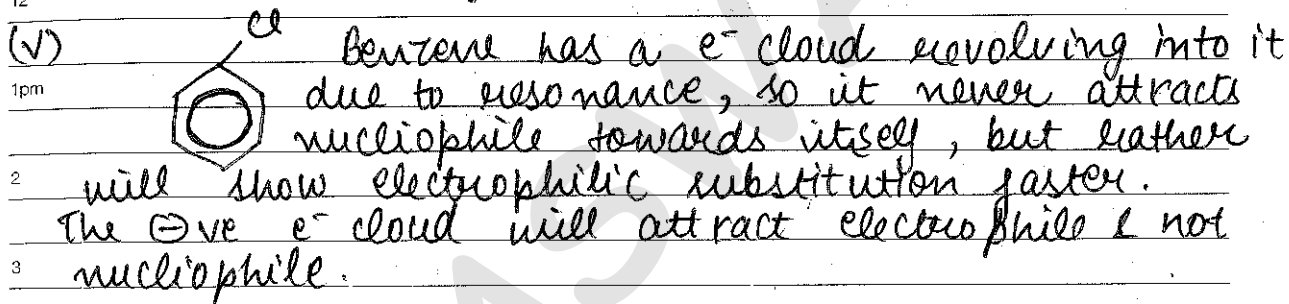 12
Cl
(V) Benzene has a e⁻ cloud revolving into it
1pm due to resonance, so it never attracts
nucliophile towards itself, but rather
2 will show electrophilic substitution faster.
The ⊖ve e⁻ cloud will attract electrophile & not
3 nucliophile.